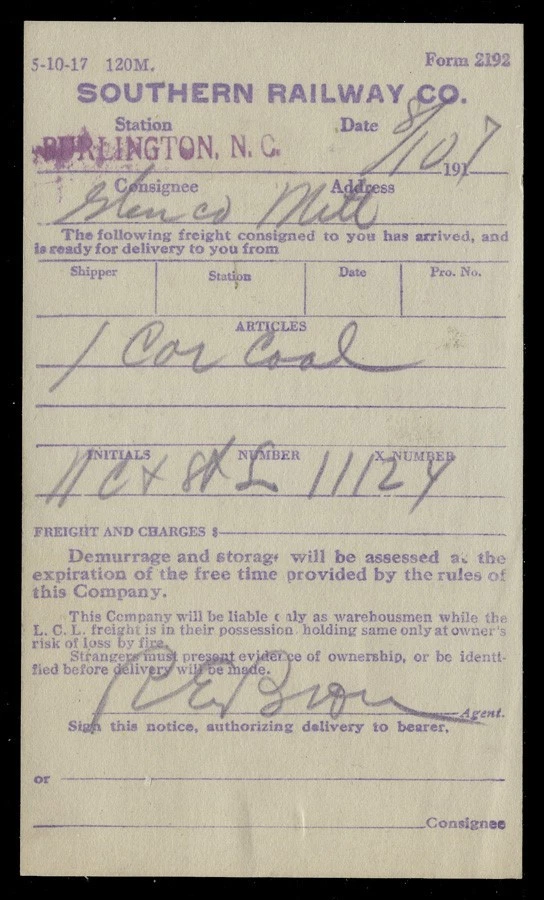 5-10-17 120M. Form 2192
SOUTHERN RAILWAY CO.
Station Date 8/10 1917
BURLINGTON, N. C.
Consignee Address
Glenco Mill
The following freight consigned to you has arrived, and
is ready for delivery to you from
Shipper Station Date Pro. No.
ARTICLES
1 Car Coal
INITIALS NUMBER X NUMBER
NC & St L 11124
FREIGHT AND CHARGES $
Demurrage and storage will be assessed at the
expiration of the free time provided by the rules of
this Company.
This Company will be liable only as warehousmen while the
L. C. L. freight is in their possession. holding same only at owner's
risk of loss by fire.
Strangers must present evidence of ownership, or be identi-
fied before delivery will be made.
R E
Agent.
Sign this notice, authorizing delivery to bearer,
or
Consignee